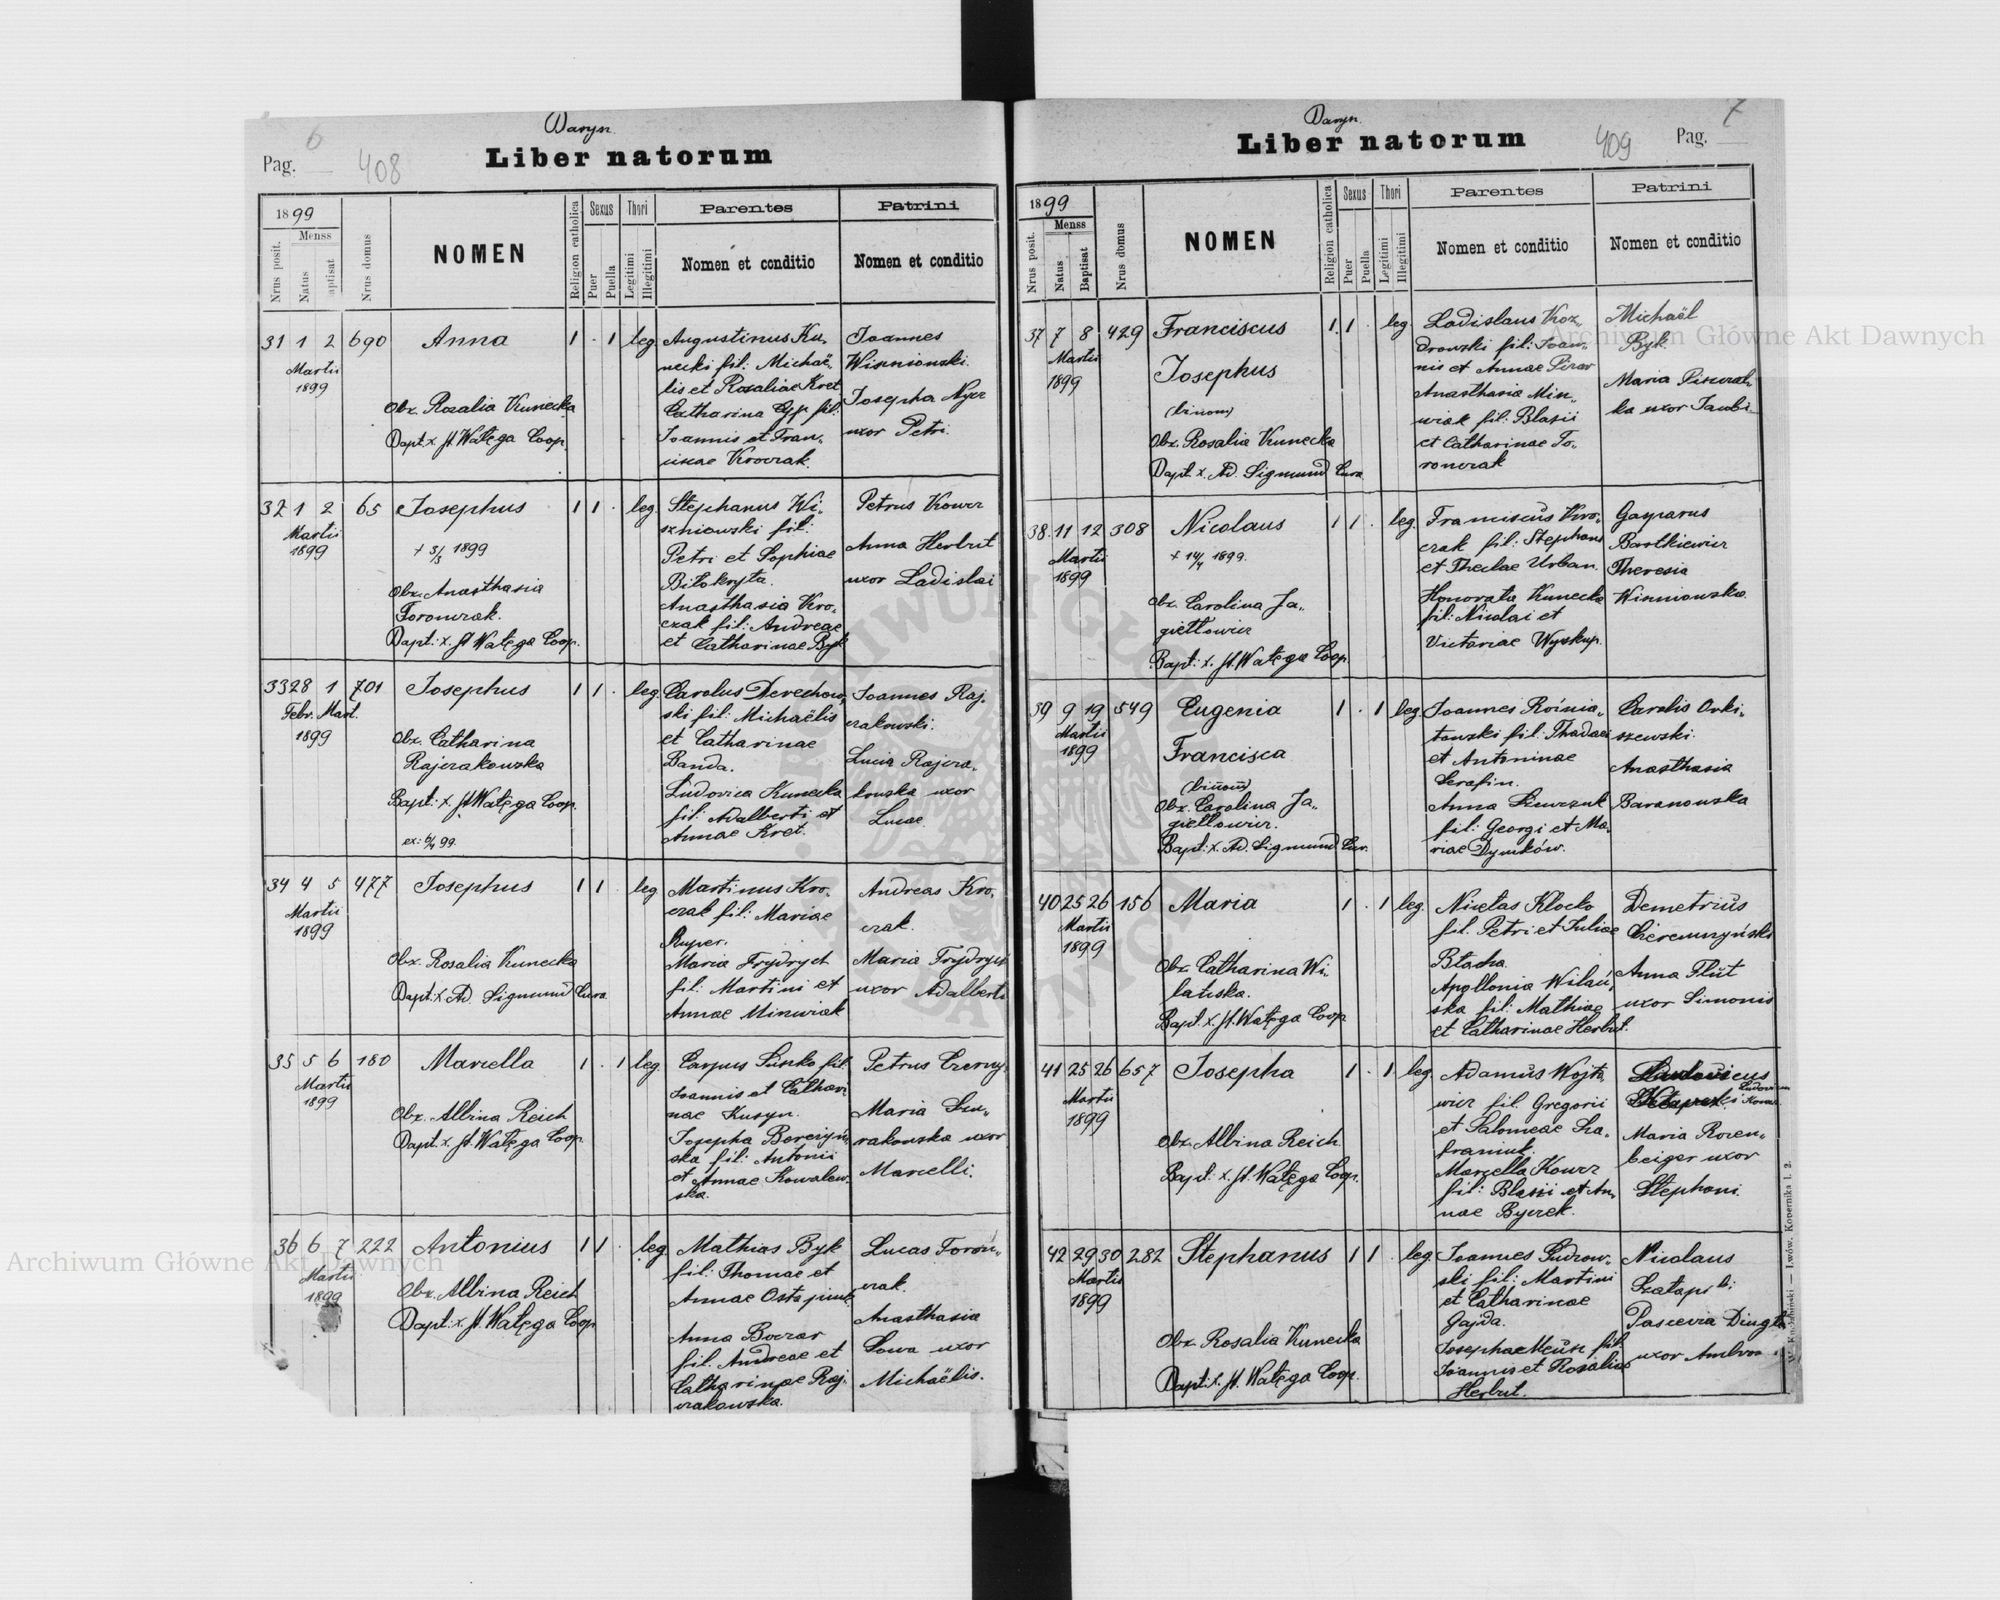 6
Pag.
408
Liber natorum
1899
Menss
Nrus posit.
Natus
aptisat
Nrus domus
NOMEN
Religion catholica
Sexus
Puer
Puella
Thori
Legitimi
Illegitimi
Parentes
Nomen et conditio
Patrini
Nomen et conditio
31 1 2 690 Anna 1 . 1 leg.
Martii
1899
Obx. Rosalia Kunecka
Bapt: x. St. Watęga Coop.
Augustinus Ku-
necki fil: Michaë-
lis et Rosaliae Kret
Catharina Epp fil:
Joannis et Fran-
Joannes
Wiszniowski.
Josepha Nycz
uxor Petri.
32 1 2 65 Josephus 1 1 . leg.
Martii
1899
+ 5/3 1899
Obx. Anasthasia
Toronczak.
Bapt: x. St. Watęga Coop.
Stephanus Wi-
szniowski fil:
Petri et Sophiae
Biłokryta.
Anasthasia Kro-
czak fil: Andreae
et Catharinae Byk
Petrus Kowcz
Anna Herbut
uxor Ladislai
33 28 1 701 Josephus 1 1 . leg.
Febr. Mart.
1899
Obx. Catharina
Rajczakowska
Bapt: x. St. Watęga Coop.
Carolus Derechow-
ski fil: Michaëlis
et Catharinae
Banda.
Ludovica Kunecka
fil: Adalberti et
Annae Kret.
Joannes Raj-
czakowski.
Lucia Rajcza-
kowska uxor
Lucae.
34 4 5 477 Josephus 1 1 . leg
Martii
1899
Obx. Rosalia Kunecka
Bapt: x. Ad. Sigmund Cura.
Martinus Kro-
czak fil: Mariae
Kuper.
Maria Frydrych
fil: Martini et
Annae Minczak
Andreas Kro-
czak.
Maria Frydrych
uxor Adalberti
35 5 6 180 Marcella 1 . 1 leg.
Martii
1899
Obx. Albina Reich
Bapt: x. St. Watęga Coop.
Joannis et Cathari
nae Kusyn.
Josepha Borczyń-
ska fil: Antonii
et Annae Kowalew-
ska.
Petrus Czerny-
Maria
rakowska uxor
Marcelli.
36 6 7 222 Antonius 1 1 . leg.
Martii
1899
Obx. Albina Reich
Bapt: x. St. Watęga Coop.
Mathias Byk
fil: Thomae et
Annae Ostapiuk.
Anna Boczar
fil: Andreae et
Catharinae Raj-
czakowska.
Lucas Toron-
czak.
Anasthasia
Sowa uxor
Michaëlis.
7
Liber natorum
409
Pag.
1899
Menss
Nrus posit.
Natus
Baptisat
Nrus domus
NOMEN
Religion catholica
Sexus
Puer
Puella
Thori
Legitimi
Illegitimi
Parentes
Nomen et conditio
Patrini
Nomen et conditio
37 7 8 429 Franciscus 1 1 . leg.
Martii
1899
Josephus
(binom)
Obx. Rosalia Kunecka
Bapt: x. Ad. Sigmund Cura.
Ladislaus Koz-
drowski fil: Joan-
nis et Annae
Anasthasia Min-
czak fil: Blasii
et Catharinae To-
ronczak
Michaël
Byk.
Maria
ka uxor Jacobi.
38. 11 12 308 Nicolaus 1 1 . leg.
Martii
1899
+ 14/4 1899.
Obx. Carolina Ja-
giełłowicz
Bapt: x. St. Watęga Coop.
Franciscus Kro-
czak fil: Stephani
et Theclae Urban.
Honorata Kunecka
fil: Nicolai et
Victoriae Wyskup.
Gasparus
Bortkiewicz
Theresia
Wiszniowska.
39 9 19 549 Eugenia 1 . 1 leg.
Martii
1899
Francisca
(binom)
Obx. Carolina Ja-
giełłowicz.
Bapt: x. Ad. Sigmund Cur.
Joannes
fil: Thadaei
et Antoninae
Serafin.
Anna Szewczuk
fil: Georgi et Ma-
riae Dymków.
Carolis Orki-
szewski.
Anasthasia
Baranowska
40 25 26 156 Maria 1 . 1 leg.
Martii
1899
Obx. Catharina Wi-
lańska.
Bapt: x. St. Watęga Coop
Nicetas Klocko
fil: Petri et Juliae
Błacha.
Apollonia Wilań-
ska fil: Mathiae
et Catharinae Herbut.
Demetrius
Anna Flüt
uxor Simonis
41 25 26 657 Josepha 1 . 1 leg.
Martii
1899
Obx. Albina Reich
Bapt: x. St. Watęga Coop.
Adamus Wojto-
wicz fil: Gregorii
et Salomeae
Marcella Kowcz
fil: Blasii et An-
nae Byczek.
Maria Rozen-
beiger uxor
Stephani.
42 29 30 282 Stephanus 1 1 . leg.
Martii
1899
Obx. Rosalia Kunecka
Bapt: x. St. Watęga Coop.
Joannes Sudrow-
ski fil: Martini
et Catharinae
Gajda.
Josepha fil:
Joannis et Rosaliae
Herbut.
Nicolaus
uxor
Archiwum Główne Akt Dawnych
Archiwum Główne Akt Dawnych
Lwów, Kopernika l. 2.